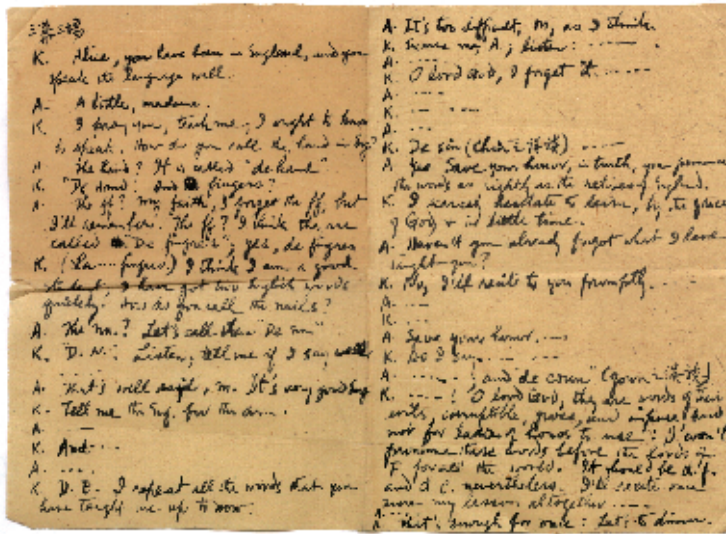 K. Alice, you have been in England, and you
speak the language well.
A. A little, madame.
K. I pray you, teach me; I ought to learn
to speak. How do you call the hand in Eng?
A. The hand? It is called "de hand"
K. "De hand". And fingers?
A. The ff? My faith, I forget the ff, but
I'll remember. The ff? I think they are
called "De fingres"; yes, de fingres
K. I think I am a good
I have got two English words
quickly. How do you call the nails?
A. The nn.? Let's call them "De nn"
K. D. N. Listen, tell me if I say well
A. That's well said, M. It's very good Eng
K. Tell me the Eng. for the arm.
A. —
K. And
A. ....
K. D. E. I repeat all the words that you
have taught me up to now.
A. It's too difficult, M, as I think.
K. Excuse me, A; listen: ......
A. ......
K. O lord God, I forget it. .....
A. ......
K. — ---
A. ...
K. De sin (chin) .....
A. Yes. Save your honor, in truth, you pronounce
the words as rightly as the natives of England.
K. I scarcely hesitate to learn, by the grace
of God & in little time.
A. Haven't you already forgot what I have
taught you?
K. No, I'll recite to you promptly.
A. ---
K. ...
A. Save your honor. ....
K. So I say. ....
A. ......! and de coun" (gown
K. ....! O lord God, they are words of
evils, corruptible, gross, and and
not for ladies of honor to use: I won't
pronounce these words before the lords of
F. for all the world. It should be d. f.
and d c. nevertheless. I'll recite once
more my lesson altogether .....
A. That's enough for once: Let's to dinner.